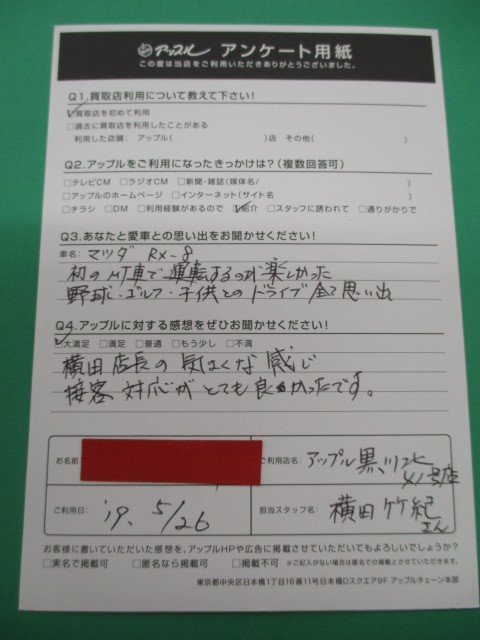 アップル アンケート用紙
この度は当店をご利用いただきありがとうございました。
Q1.買取店利用について教えて下さい!
☑買取店を初めて利用
□過去に買取店を利用したことがある
利用した店舗: アップル( )店 その他( )
Q2.アップルをご利用になったきっかけは?(複数回答可)
□テレビCM □ラジオCM □新聞・雑誌(媒体名/ )
□アップルのホームページ □インターネット(サイト名 )
□チラシ □DM □利用経験があるので ☑紹介 □スタッフに誘われて □通りがかりで
Q3.あなたと愛車との思い出をお聞かせください!
車名: マツダ RX-8
初のMT車で運転するのが楽しかった
野球・ゴルフ・子供とのドライブ全て思い出
Q4.アップルに対する感想をぜひお聞かせください!
☑大満足 □満足 □普通 □もう少し □不満
横田店長の気さくな感じ
接客対応がとても良かったです。
お名前:
ご利用店名: アップル黒川北
41号店
ご利用日: '19. 5/26
担当スタッフ名: 横田竹紀
さん
お客様に書いていただいた感想を、アップルHPや広告に掲載させていただいてもよろしいでしょうか?
□実名で掲載可 □匿名なら掲載可 □掲載不可 ※ご記入がない場合は匿名での掲載とさせていただきます。
東京都中央区日本橋1丁目16番11号日本橋Dスクエア9F アップルチェーン本部